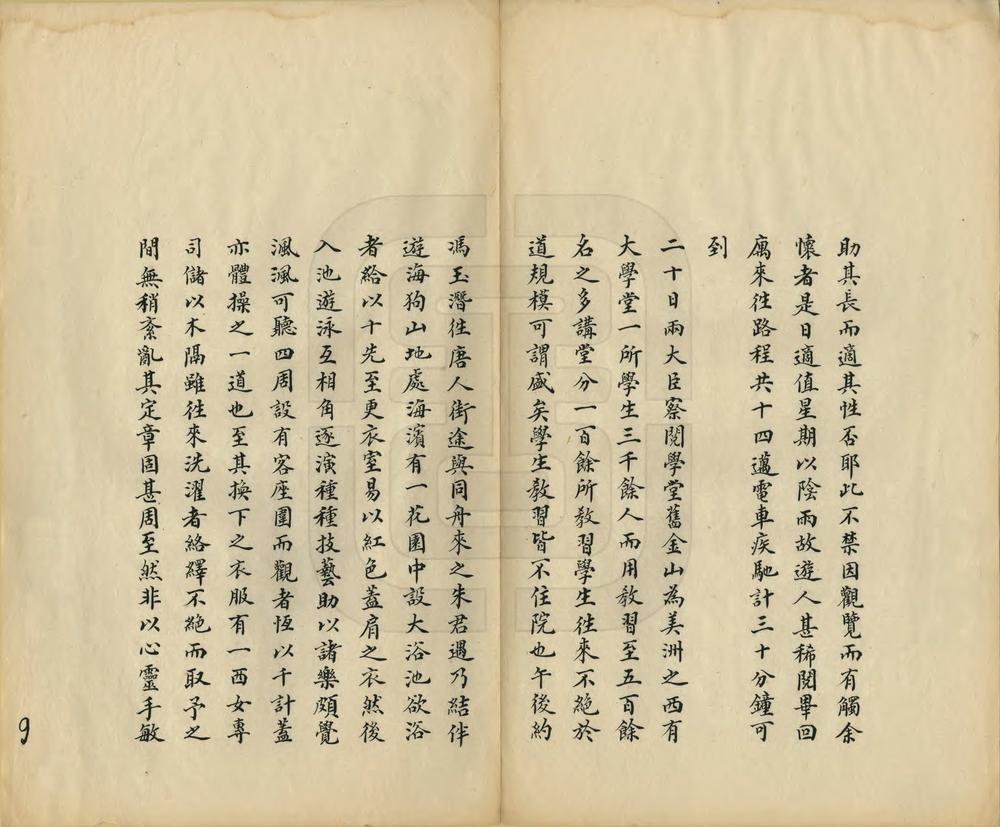 助其長而適其性否耶此不禁因觀覽而有觸余
懷者是日適值星期以陰雨故遊人甚稀閱畢回
寓來往路程共十四邁電車疾馳計三十分鐘可
到
二十日兩大臣察閱學堂舊金山為美洲之西有
大學堂一所學生三千餘人而用教習至五百餘
名之多講堂分一百餘所教習學生往來不絕於
道規模可謂盛矣學生教習皆不住院也午後約
馮玉潛往唐人街途與同舟來之朱君遇乃結伴
遊海狗山地處海濱有一花園中設大浴池欲浴
者給以十先至更衣室易以紅色蓋肩之衣然後
入池遊泳互相角逐演種種技藝助以諸樂頗覺
渢渢可聽四周設有客座圍而觀者恆以千計蓋
亦體操之一道也至其換下之衣服有一西女專
司儲以木隔雖往來洗濯者絡繹不絕而取予之
間無稍紊亂其定章固甚周至然非以心靈手敏
9